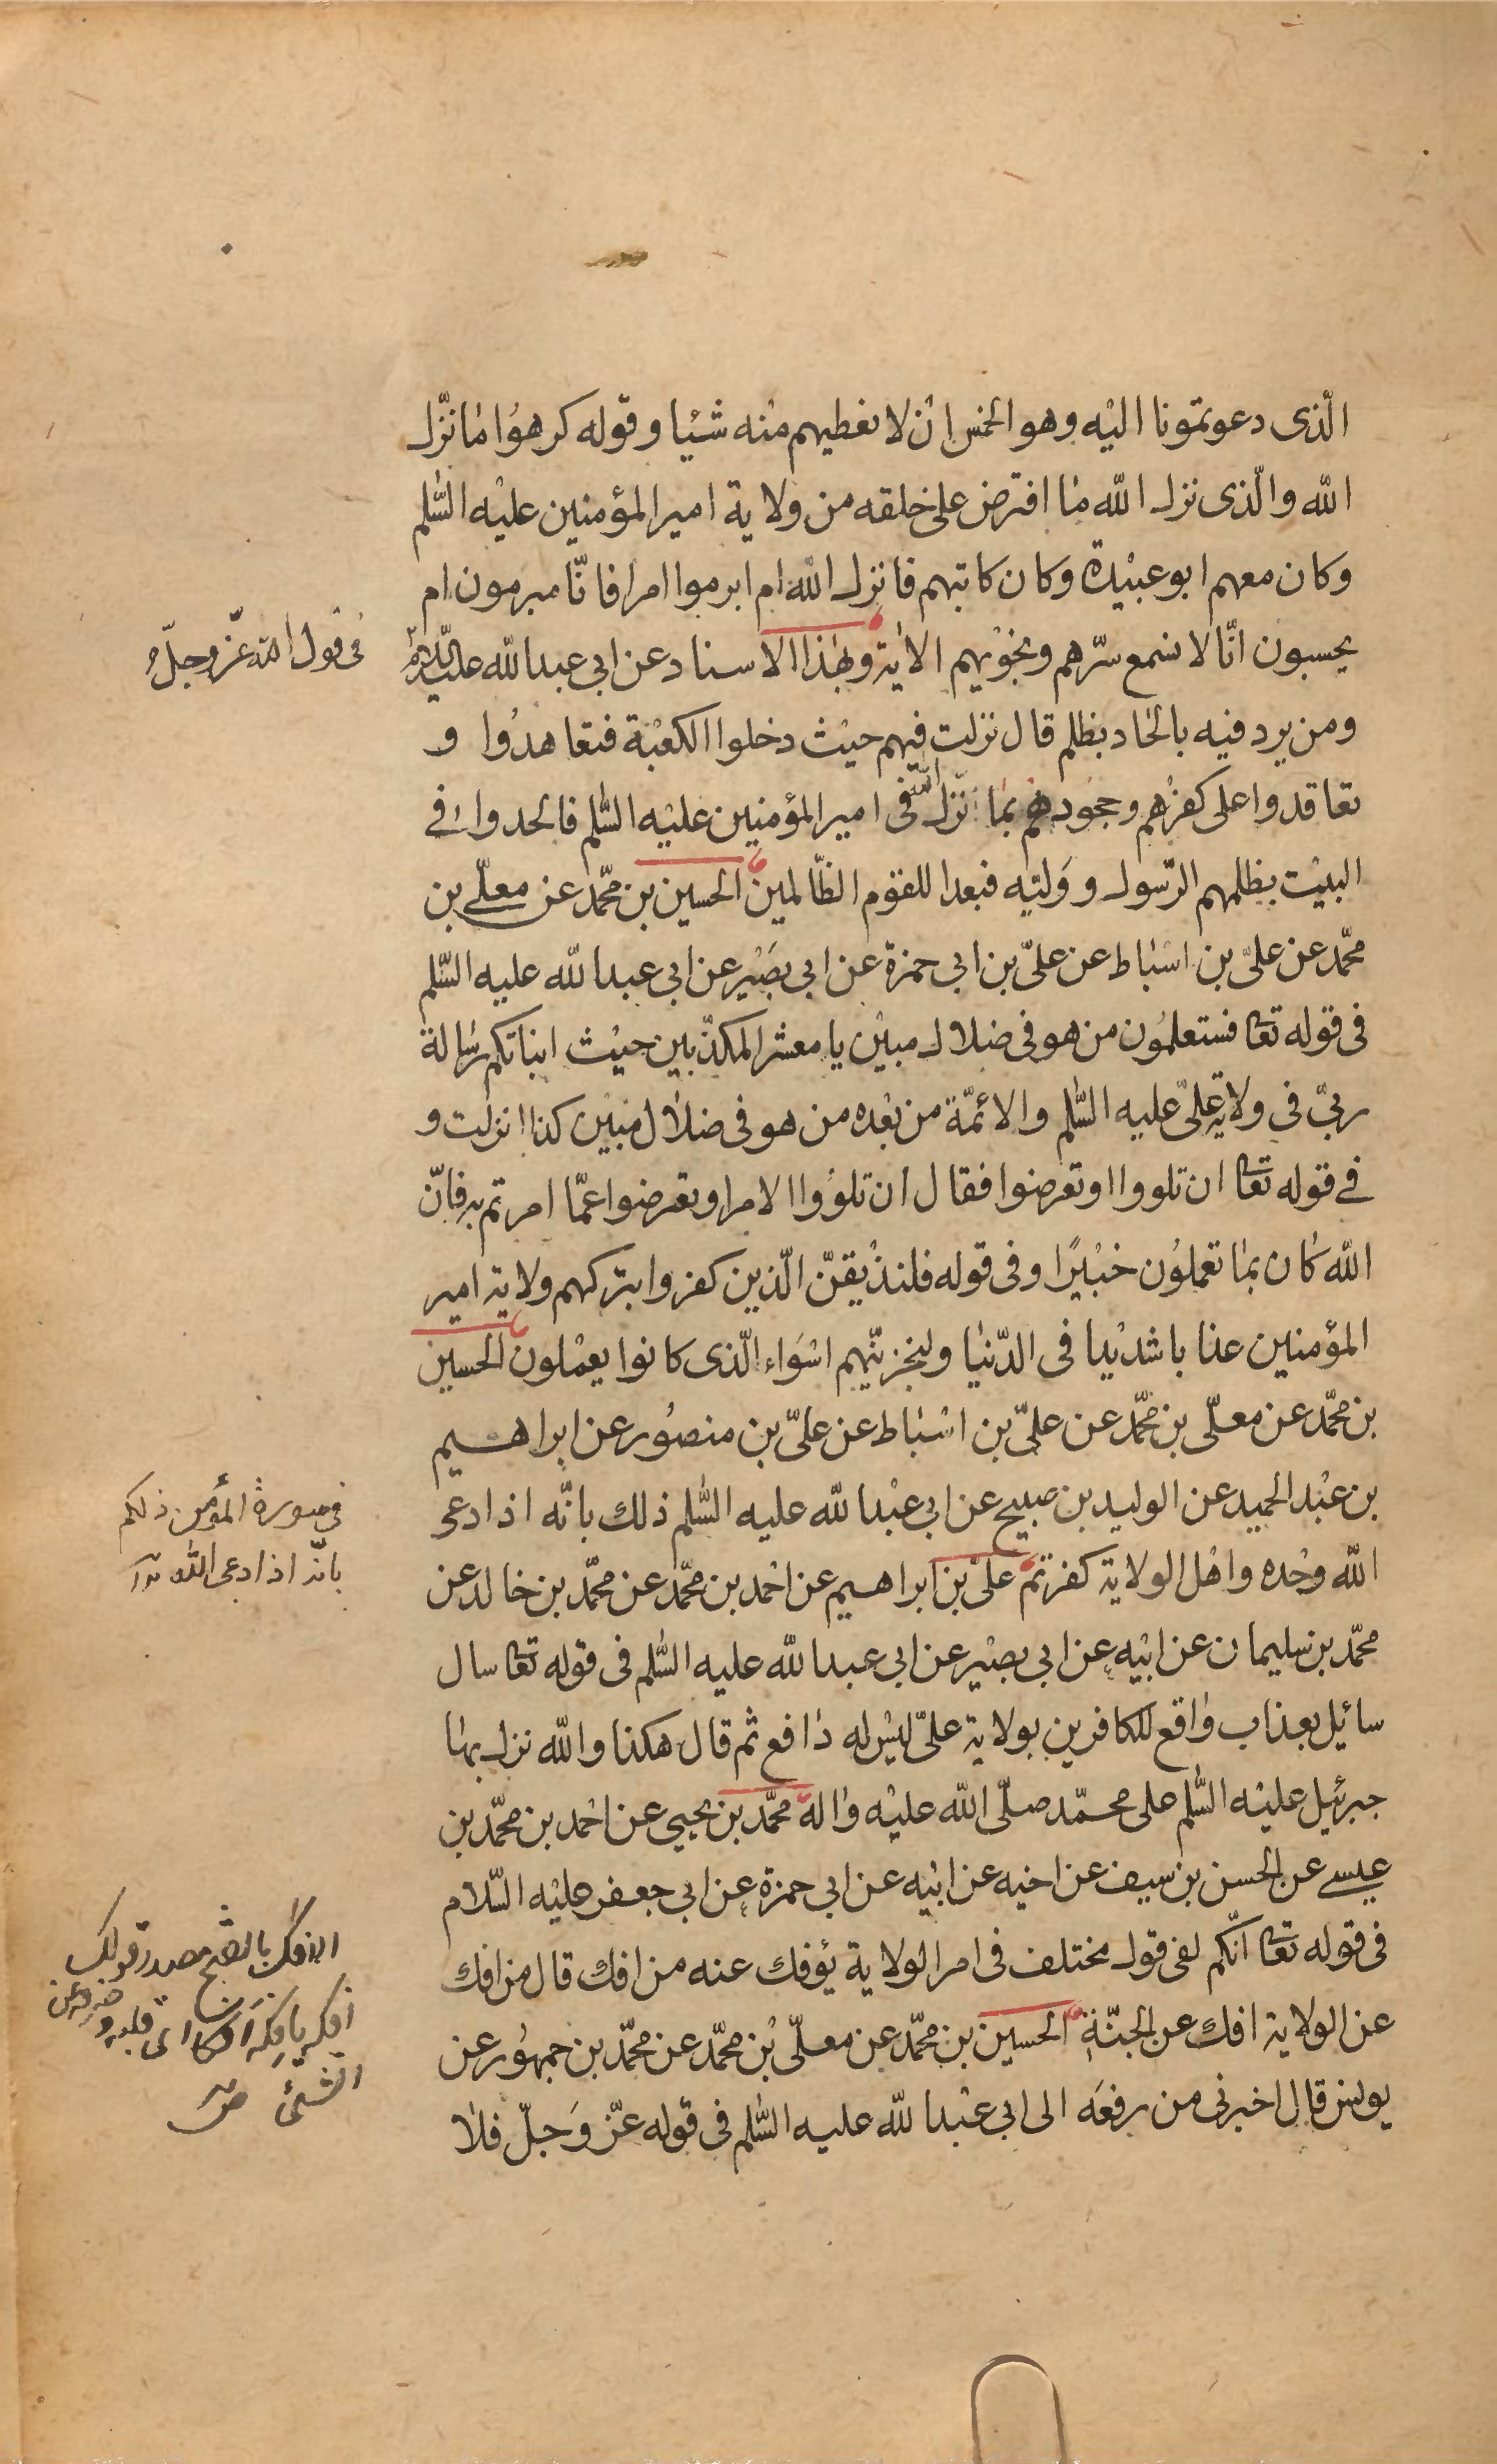 الّذى دعوتمونا اليه وهو الخمس ان لا نعطيهم منه شيئا وقوله كرهوا ما نزّل
الله والّذى نزل الله ما افترض على خلقه من ولاية امير المؤمنين عليه السّلم
وكان معهم ابو عبيدة وكان كاتبهم فانزل الله ام ابرموا امرا فانّا مبرمون ام
يحسبون انّا لا نسمع سرّهم ونجويهم الاية وبهذا الاسناد عن ابى عبدالله عليه السلم
فى قول الله عزّ وجلّ
ومن يرد فيه بالحاد بظلم قال نزلت فيهم حيث دخلوا الكعبة فتعاهدوا و
تعاقدوا على كفرهم وجحودهم بما نزّل الله فى امير المؤمنين عليه السّلم فالحدوا فى
البيت بظلمهم الرّسول ووليّه فبعدا للقوم الظّالمين الحسين بن محمّد عن معلّى بن
محمّد عن علىّ بن اسباط عن علىّ بن ابى حمزة عن ابى بصير عن ابى عبدالله عليه السّلم
فى قوله تعا فستعلمون من هو فى ضلال مبين يا معشر المكذّبين حيث انباتكم رسالة
ربّى فى ولاية علىّ عليه السّلم والائمّة من بعده من هو فى ضلال مبين كذا انزلت و
فى قوله تعا ان تلووا او تعرضوا فقال ان تلووا الامر او تعرضوا عمّا امرتم به فانّ
الله كان بما تعملون خبيرًا وفى قوله فلنذيقنّ الّذين كفروا بتركهم ولاية امير
المؤمنين عذابا شديدا فى الدّنيا ولنجزينّهم اسواء الّذى كانوا يعملون الحسين
بن محمّد عن معلّى بن محمّد عن علىّ بن اسباط عن علىّ بن منصور عن ابراهيم
بن عبد الحميد عن الوليد بن صبيح عن ابى عبدالله عليه السّلم ذلك بانّه اذا دعى
فى سورة المؤمن ذلكم
بانّه اذا دعى الله
الله وحده واهل الولاية كفرتم علىّ بن ابراهيم عن احمد بن محمّد عن محمّد بن خالد عن
محمّد بن سليمان عن ابيه عن ابى بصير عن ابى عبدالله عليه السّلم فى قوله تعا سال
سائل بعذاب واقع للكافرين بولاية علىّ ليس له دافع ثم قال هكذا والله نزل بها
جبرئيل عليه السّلم على محمّد صلّى الله عليه واله محمّد بن يحيى عن احمد بن محمّد بن
عيسى عن الحسن بن سيف عن اخيه عن ابيه عن ابى حمزة عن ابى جعفر عليه السّلام
فى قوله تعا انّكم لفى قول مختلف فى امر الولاية يؤفك عنه من افك قال من افك
الافك بالفتح مصدر قولك
افكه يافكه افكا اى قلبه وصرفه عن
الشئ
عن الولاية افك عن الجنّة الحسين بن محمّد عن معلّى بن محمّد عن محمّد بن جمهور عن
يونس قال اخبرنى من رفعه الى ابى عبدالله عليه السّلم فى قوله عزّ وجلّ فلا